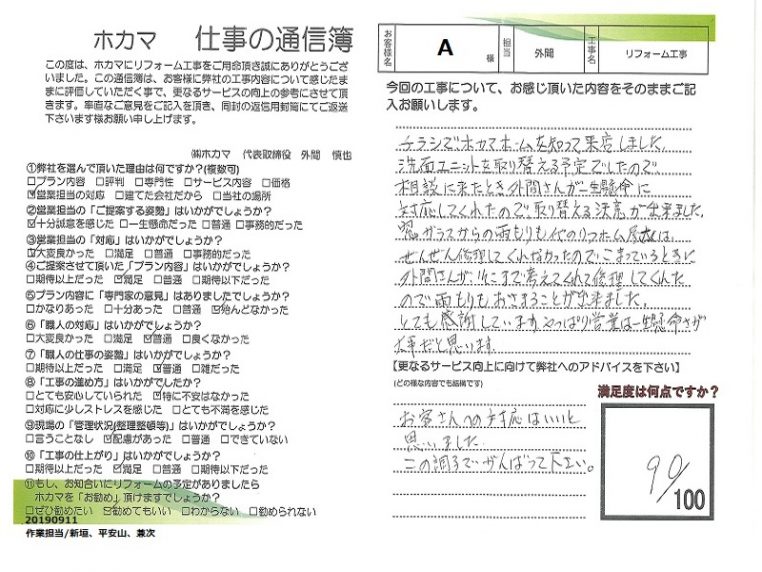 ホカマ 仕事の通信簿
この度は、ホカマにリフォーム工事をご用命頂き誠にありがとうござ
いました。この通信簿は、お客様に弊社の工事内容について感じたま
まに評価していただく事で、更なるサービスの向上の参考にさせて頂
きます。率直なご意見をご記入を頂き、同封の返信用封筒にてご返送
下さいます様お願い申し上げます。
㈲ホカマ 代表取締役 外間 慎也
①弊社を選んで頂いた理由は何ですか?(複数可)
□プラン内容 □評判 □専門性 □サービス内容 □価格
☑営業担当の対応 □建てた会社だから □当社の場所
②営業担当の「ご提案する姿勢」はいかがでしょうか?
☑十分誠意を感じた □一生懸命だった □普通 □事務的だった
③営業担当の「対応」はいかがでしょうか?
☑大変良かった □満足 □普通 □事務的だった
④ご提案させて頂いた「プラン内容」はいかがでしょうか?
□期待以上だった ☑満足 □普通 □期待以下だった
⑤プラン内容に「専門家の意見」はありましたでしょうか?
□かなりあった □十分あった □普通 ☑殆んどなかった
⑥「職人の対応」はいかがでしょうか?
□大変良かった □満足 ☑普通 □良くなかった
⑦「職人の仕事の姿勢」はいかがでしょうか?
□期待以上だった □満足 ☑普通 □雑だった
⑧「工事の進め方」はいかがでしたか?
□とても安心していられた ☑特に不安はなかった
□対応に少しストレスを感じた □とても不満を感じた
⑨現場の「管理状況(整理整頓等)」はいかがでしょうか?
□言うことなし ☑配慮があった □普通 □できていない
⑩「工事の仕上がり」はいかがでしょうか?
□期待以上だった ☑満足 □普通 □期待以下だった
⑪もし、お知合いにリフォームの予定がありましたら
ホカマを「お勧め」頂けますでしょうか?
□ぜひ勧めたい ☑勧めてもいい □わからない □勧められない
20190911
作業担当/新垣、平安山、兼次
お客様名 A 様 担当 外間 工事名 リフォーム工事
今回の工事について、お感じ頂いた内容をそのままご記
入お願いします。
チラシでホカマホームを知って来店しました。
洗面ユニットを取り替える予定でしたので
相談に来たとき外間さんが一生懸命に
対応してくれたので取り替える決意が出来ました。
窓ガラスからの雨もりも他のリフォーム屋さんは
ぜんぜん修理してくれなかったのでこまっているときに
外間さんが、そこまで考えてくれて修理してくれた
ので雨もりもおさまることが出来ました。
とても感謝しています。やっぱり営業は一生懸命さが
大事だと思います。
【更なるサービス向上に向けて弊社へのアドバイスを下さい】
(どの様な内容でも結構です)
お客さんへの対応はいいと
思いました。
この調子でがんばって下さい。
満足度は何点ですか?
90/100